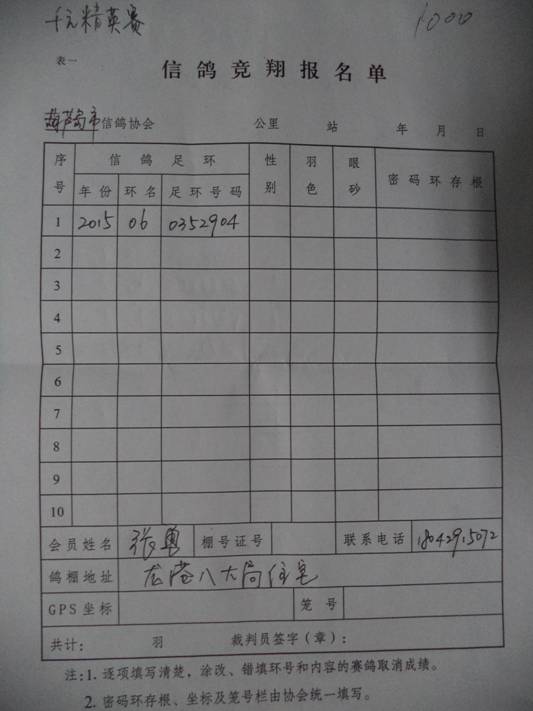 千元精英赛 1000
表一
信鸽竞翔报名单
葫芦岛市信鸽协会 公里 站 年 月 日
序号 信鸽足环 性别 羽色 眼砂 密码环存根
年份 环名 足环号码
1 2015 06 0352904
2
3
4
5
6
7
8
9
10
会员姓名 张勇 棚号证号 联系电话 18042915072
鸽棚地址 龙港八大局住宅
GPS坐标 笼号
共计: 羽 裁判员签字(章):
注:1. 逐项填写清楚,涂改、错填环号和内容的赛鸽取消成绩。
2. 密码环存根、坐标及笼号栏由协会统一填写。